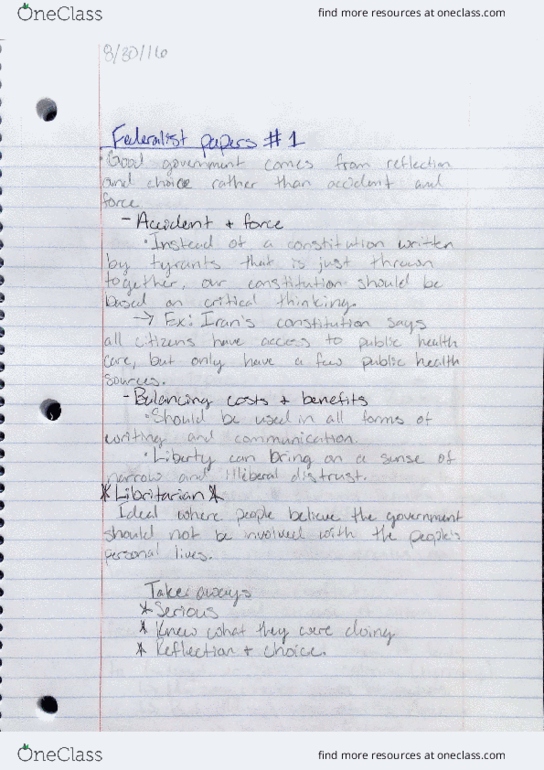 OneClass
find more resources at oneclass.com
8/30/16
Federalist papers #1
Good government comes from reflection
and choice rather than accident and
force.
- Accident + force
• Instead of a constitution written
by tyrants that is just thrown
together, our constitution should be
based on critical thinking.
→ Ex: Iran's constitution says
all citizens have access to public health
care, but only have a few public health
sources.
- Balancing costs + benefits
• Should be used in all forms of
writing and communication.
• Liberty can bring on a sense of
narrow and illiberal distrust.
*Libritarian*
Ideal where people believe the government
should not be involved with the people's
personal lives.
Take aways
* Serious
* Knew what they were doing
* Reflection + choice.
OneClass
find more resources at oneclass.com